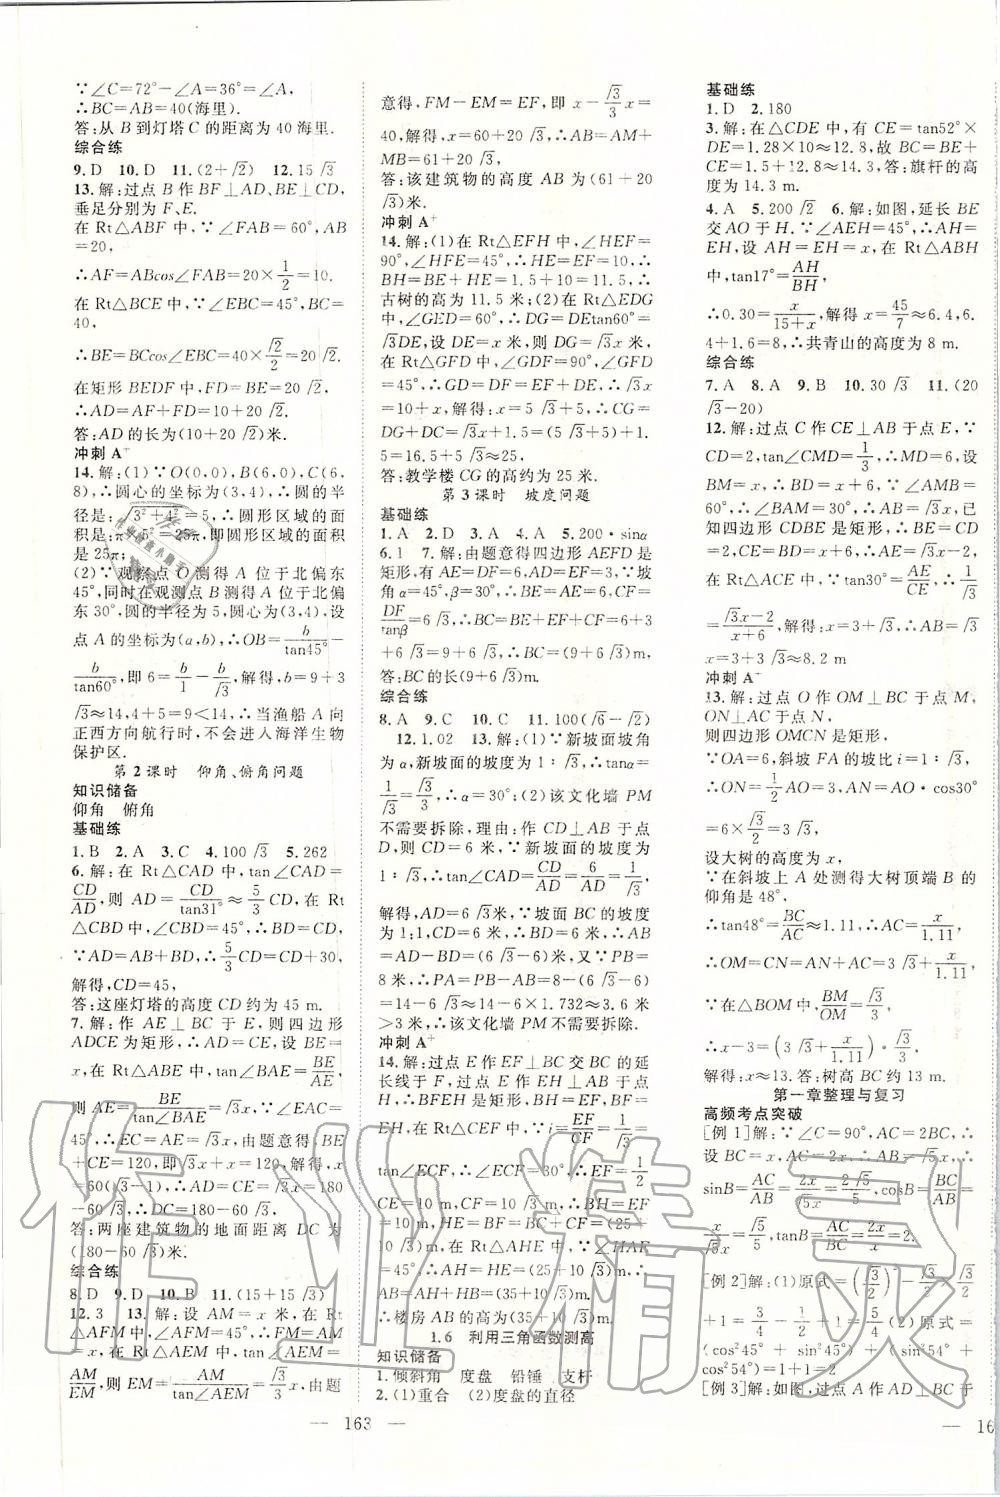 ∵∠C=72°-∠A=36°=∠A,
∴BC=AB=40(海里).
答:从 B 到灯塔 C 的距离为 40 海里.
综合练
9. D 10. D 11. (2+√2) 12. 15√3
13. 解:过点 B 作 BF⊥AD,BE⊥CD,
垂足分别为 F、E.
在 Rt△ABF 中,∵∠FAB=60°,AB
=20,
∴AF=ABcos∠FAB=20×1/2=10.
在 Rt△BCE 中,∵∠EBC=45°,BC=
40,
∴BE=BCcos∠EBC=40×√2/2=20√2.
在矩形 BEDF 中,FD=BE=20√2,
∴AD=AF+FD=10+20√2.
答:AD 的长为(10+20√2)米.
冲刺 A⁺
14. 解:(1)∵O(0,0),B(6,0),C(6,
8),∴圆心的坐标为(3,4),圆的半
径是:√(3²+4²)=5,∴圆形区域的面
积是:π·5²=25π,即圆形区域的面积
是 25π;
(2)∵观察点 O 测得 A 位于北偏东
45°,同时在观测点 B 测得 A 位于北偏
东 30°,圆的半径为 5,圆心为(3,4),设
点 A 的坐标为(a,b),∴OB=b/tan45°-
b/tan60°,即 6=b/1-b/√3,解得,b=9+3
√3≈14,4+5=9<14,∴当渔船 A 向
正西方向航行时,不会进入海洋生物
保护区.
第 2 课时 仰角、俯角问题
知识储备
仰角 俯角
基础练
1. B 2. A 3. C 4. 100√3 5. 262
6. 解:在 Rt△CAD 中,tan∠CAD=
CD/AD,则 AD=CD/tan31°≈5/3 CD,在 Rt
△CBD 中,∠CBD=45°,∴BD=CD,
∵AD=AB+BD,∴5/3 CD=CD+30,
解得,CD=45,
答:这座灯塔的高度 CD 约为 45 m.
7. 解:作 AE⊥BC 于 E,则四边形
ADCE 为矩形,∴EC=AD=120,设 BE=
x,在 Rt△ABE 中,tan∠BAE=BE/AE,
则 AE=BE/tan∠BAE=√3x,∵∠EAC=
45°,∴EC=AE=√3x,由题意得,BE
+CE=120,即√3x+x=120,解得,x
=60(√3-1),∴AD=√3x=180
-60√3,∴DC=180-60√3,
答:两座建筑物的地面距离 DC 为
(180-60√3)米.
综合练
8. D 9. D 10. B 11. (15+15√3)
12. 3 13. 解:设 AM=x 米,在 Rt
△AFM 中,∠AFM=45°,∴FM=
AM=x,在 Rt△AEM 中,tan∠AEM=
AM/EM,则 EM=AM/tan∠AEM=√3/3 x,由题
意得,FM-EM=EF,即 x-√3/3 x=
40,解得,x=60+20√3,∴AB=AM+
MB=61+20√3.
答:该建筑物的高度 AB 为(61+20
√3)米.
冲刺 A⁺
14. 解:(1)在 Rt△EFH 中,∠HEF=
90°,∠HFE=45°,∴HE=EF=10,∴
BH=BE+HE=1.5+10=11.5,∴
古树的高为 11.5 米;(2)在 Rt△EDG
中,∠GED=60°,∴DG=DEtan60°=
√3DE,设 DE=x 米,则 DG=√3x
米,在 Rt△GFD 中,∠GDF=90°,∠GFD
=45°,∴GD=DF=EF+DE,∴√3x
=10+x,解得:x=5√3+5,∴CG=
DG+DC=√3x+1.5=√3(5√3+5)+
1.5=16.5+5√3≈25,
答:教学楼 CG 的高约为 25 米.
第 3 课时 坡度问题
基础练
1. A 2. D 3. A 4. A 5. 200·sinα
6. 1 7. 解:由题意得四边形 AEFD 是
矩形,有 AE=DF=6,AD=EF=3,坡
角 α=45°,β=30°,∴BE=AE=6,CF=
DF/tanβ=6√3,∴BC=BE+EF+CF=6+3
+6√3=9+6√3,∴BC=(9+6√3)m.
答:BC 的长(9+6√3)m.
综合练
8. A 9. C 10. C 11. 100(√6-√2)
12. 1.02 13. 解:(1)∵新坡面坡角
为 α,新坡面的坡度为 1∶√3,∴tanα=
1/√3=√3/3,∴α=30°;(2)该文化墙 PM
不需要拆除,理由:作 CD⊥AB 于点
D,则 CD=6 米,∵新坡面的坡度为
1∶√3,∴tan∠CAD=CD/AD=6/AD=1/√3,
解得,AD=6√3,∵坡面 BC 的坡度
为 1:1,CD=6 米,∴BD=6 米,∴AB
=AD-BD=(6√3-6)米,又∵PB=
8 米,∴PA=PB-AB=8-(6√3-6)
=14-6√3≈14-6×1.732≈3.6 米
>3 米,∴该文化墙 PM 不需要拆除.
冲刺 A⁺
14. 解:过点 E 作 EF⊥BC 交 BC 的延
长线于 F,过点 E 作 EH⊥AB 于点
H,∴BFEH 是矩形,∴EF=BH,BF=
EH,在 Rt△CEF 中,∵i=EF/CF=1/√3=
tan∠ECF,∴∠ECF=30°,∴EF=1/2
CE=10 m,CF=10√3m,∴BH=EF
=10 m,HE=BF=BC+CF=(25+
10√3)m,在 Rt△AHE 中,∵∠HAE
=45°,∴AH=HE=(25+10√3)m,
∴AB=AH+HB=(35+10√3)m.
∴楼房 AB 的高为(35+10√3)m.
1.6 利用三角函数测高
知识储备
1. 倾斜角 度盘 铅锤 支杆
2. (1)重合 (2)度盘的直径
基础练
1. D 2. 180
3. 解:在△CDE 中,有 CE=tan52°×
DE=1.28×10≈12.8,故 BC=BE+
CE=1.5+12.8≈14.3,答:旗杆的高
度为 14.3 m.
4. A 5. 200√2 6. 解:如图,延长 BE
交 AO 于 H,∵∠AEH=45°,∴AH=
EH,设 AH=EH=x,在 Rt△ABH
中,tan17°=AH/BH,
∴0.30=x/(15+x),解得 x=45/7≈6.4,6.
4+1.6=8 m,∴共青山的高度为 8 m.
综合练
7. A 8. A 9. B 10. 30√3 11. (20
√3-20)
12. 解:过点 C 作 CE⊥AB 于点 E,∵
CD=2,tan∠CMD=1/3,∴MD=6,设
BM=x,∴BD=x+6,∵∠AMB=
60°,∴∠BAM=30°,∴AB=√3x,已
知四边形 CDBE 是矩形,∴BE=CD=
2,CE=BD=x+6,∴AE=√3x-2,在
Rt△ACE 中,∵tan30°=AE/CE,∴1/√3=
(√3x-2)/(x+6),解得:x=3+√3,∴AB=√3
x=3+3√3≈8.2 m
冲刺 A⁺
13. 解:过点 O 作 OM⊥BC 于点 M,
ON⊥AC 于点 N,
则四边形 OMCN 为矩形,
∵OA=6,斜坡 FA 坡比 i=1∶√3,
∴ON=1/2 AO=3,AN=AO·cos30°
=6×√3/2=3√3,
设大树的高度为 x m,
∵在斜坡上 A 处测得大树顶端 B 的
仰角是 48°,
∴tan48°=BC/AC≈1.11,∴AC=x/1.11,
∴OM=CN=AN+AC=3√3+x/1.11,
∵在△BOM 中,BM/OM=√3/3,
∴x-3=(3√3+x/1.11)·√3/3,
解得:x≈13. 答:树高 BC 约 13 m.
第一章整理与复习
高频考点突破
[例 1]解:∵∠C=90°,AC=2BC,∴
设 BC=x,AC=2x,∴AB=√5x,∴
sinB=AC/AB=2x/√5x=2√5/5,cosB=BC/AB=
x/√5x=√5/5,tanB=AC/BC=2x/x=2.
[例 2]解:(1)原式=
+1=
(cos²45°+sin²45°)+(sin²54°+
cos²54°)=1+1=2
[例 3]解:如图,过点 A 作 AD⊥
— 163 —
16
作业精灵